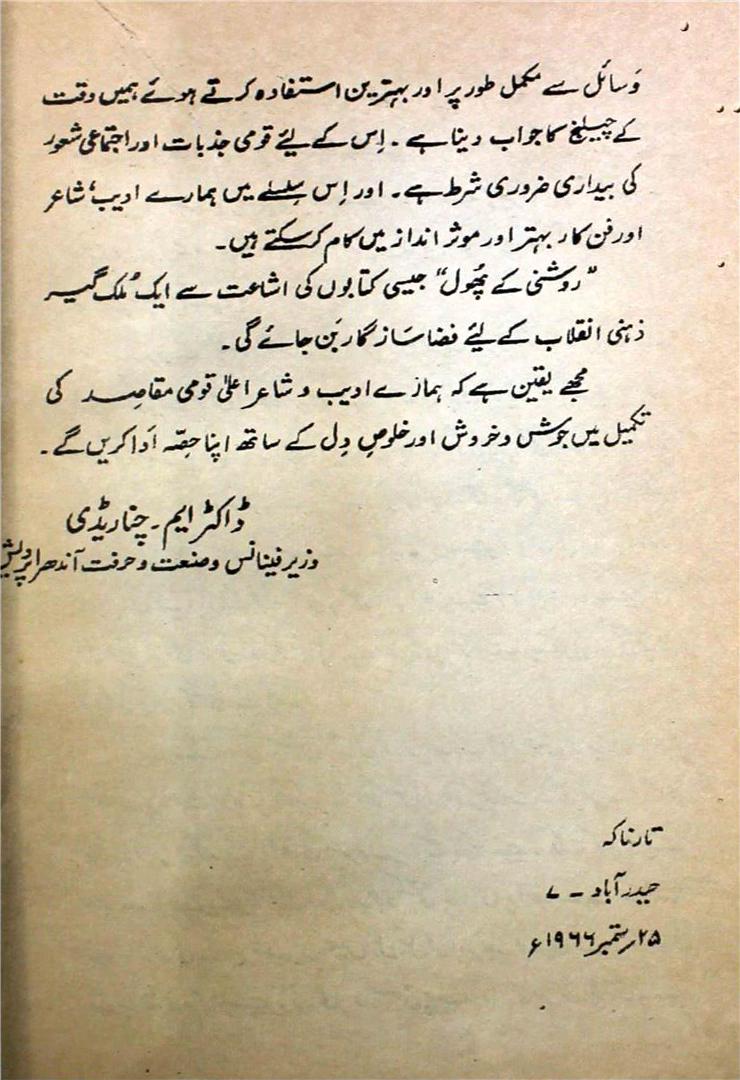 وَسائل سے مکمل طور پر اور بہترین استفادہ کرتے ہوئے ہمیں وقت
کے چیلنج کا جواب دینا ہے ۔ اِس کے لیٔے قومی جذبات اور اجتماعی شعور
کی بیداری ضروری شرط ہے۔ اور اِس سلسلے میں ہمارے ادیب ٗ شاعر
اور فن کار بہتر اور موثر انداز میں کام کرسکتے ہیں۔
”روشنی کے پھُول“ جیسی کتابوں کی اشاعت سے ایک مُلک گیر
ذہنی انقلاب کے لیٔے فضا سَازگار بَن جائے گی ۔
مجھے یقین ہے کہ ہمارے ادیب و شاعر اعلیٰ قومی مقاصِد کی
تکمیل میں جوش و خروش اور خلوصِ دِل کے ساتھ اپنا حِصّہ اَدا کریں گے ۔
ڈاکٹر ایم ۔ چنا ریڈی
وزیر فینانس و صنعت و حرفت آندھرا پردیش
تارناکہ
حیدرآباد ۔ ۷
۲۵؍ ستمبر ۱۹۶۶ء